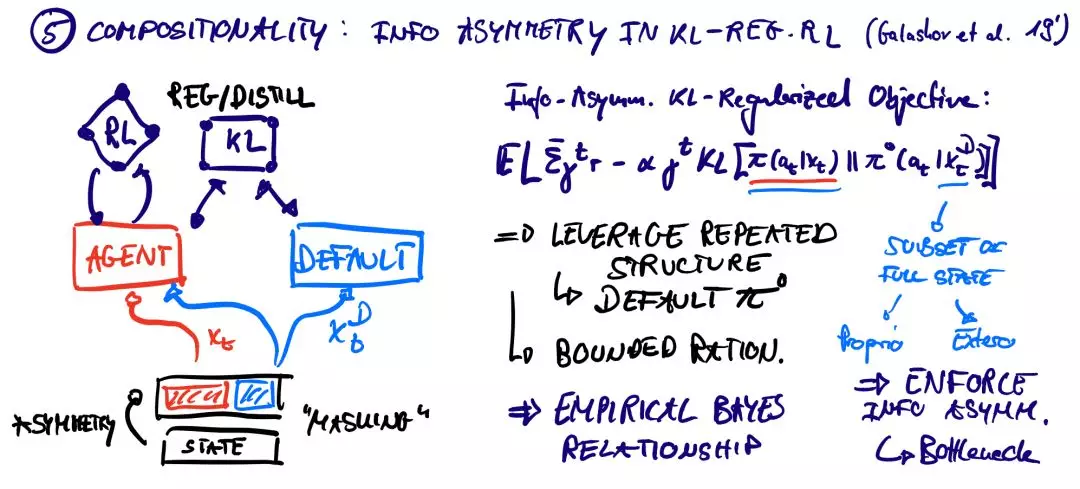 ⑤ COMPOSITIONALITY: INFO ASYMMETRY IN KL-REG. RL (Galashov et al. 19')
REG/DISTILL
RL
KL
AGENT
DEFAULT
x_t
x_t^D
ASYMMETRY
"MASKING"
STATE
Info-Asymm. KL-Regularized Objective:
E[Σγ^t r - α γ^t KL[π(a_t|x_t) || π^0(a_t|x_t^D)]]
⇒ LEVERAGE REPEATED
STRUCTURE
↳ DEFAULT π^0
↳ BOUNDED RATION.
⇒ EMPIRICAL BAYES
RELATIONSHIP
SUBSET OF
FULL STATE
Proprio
Extero
⇒ ENFORCE
INFO ASYMM.
↳ Bottleneck